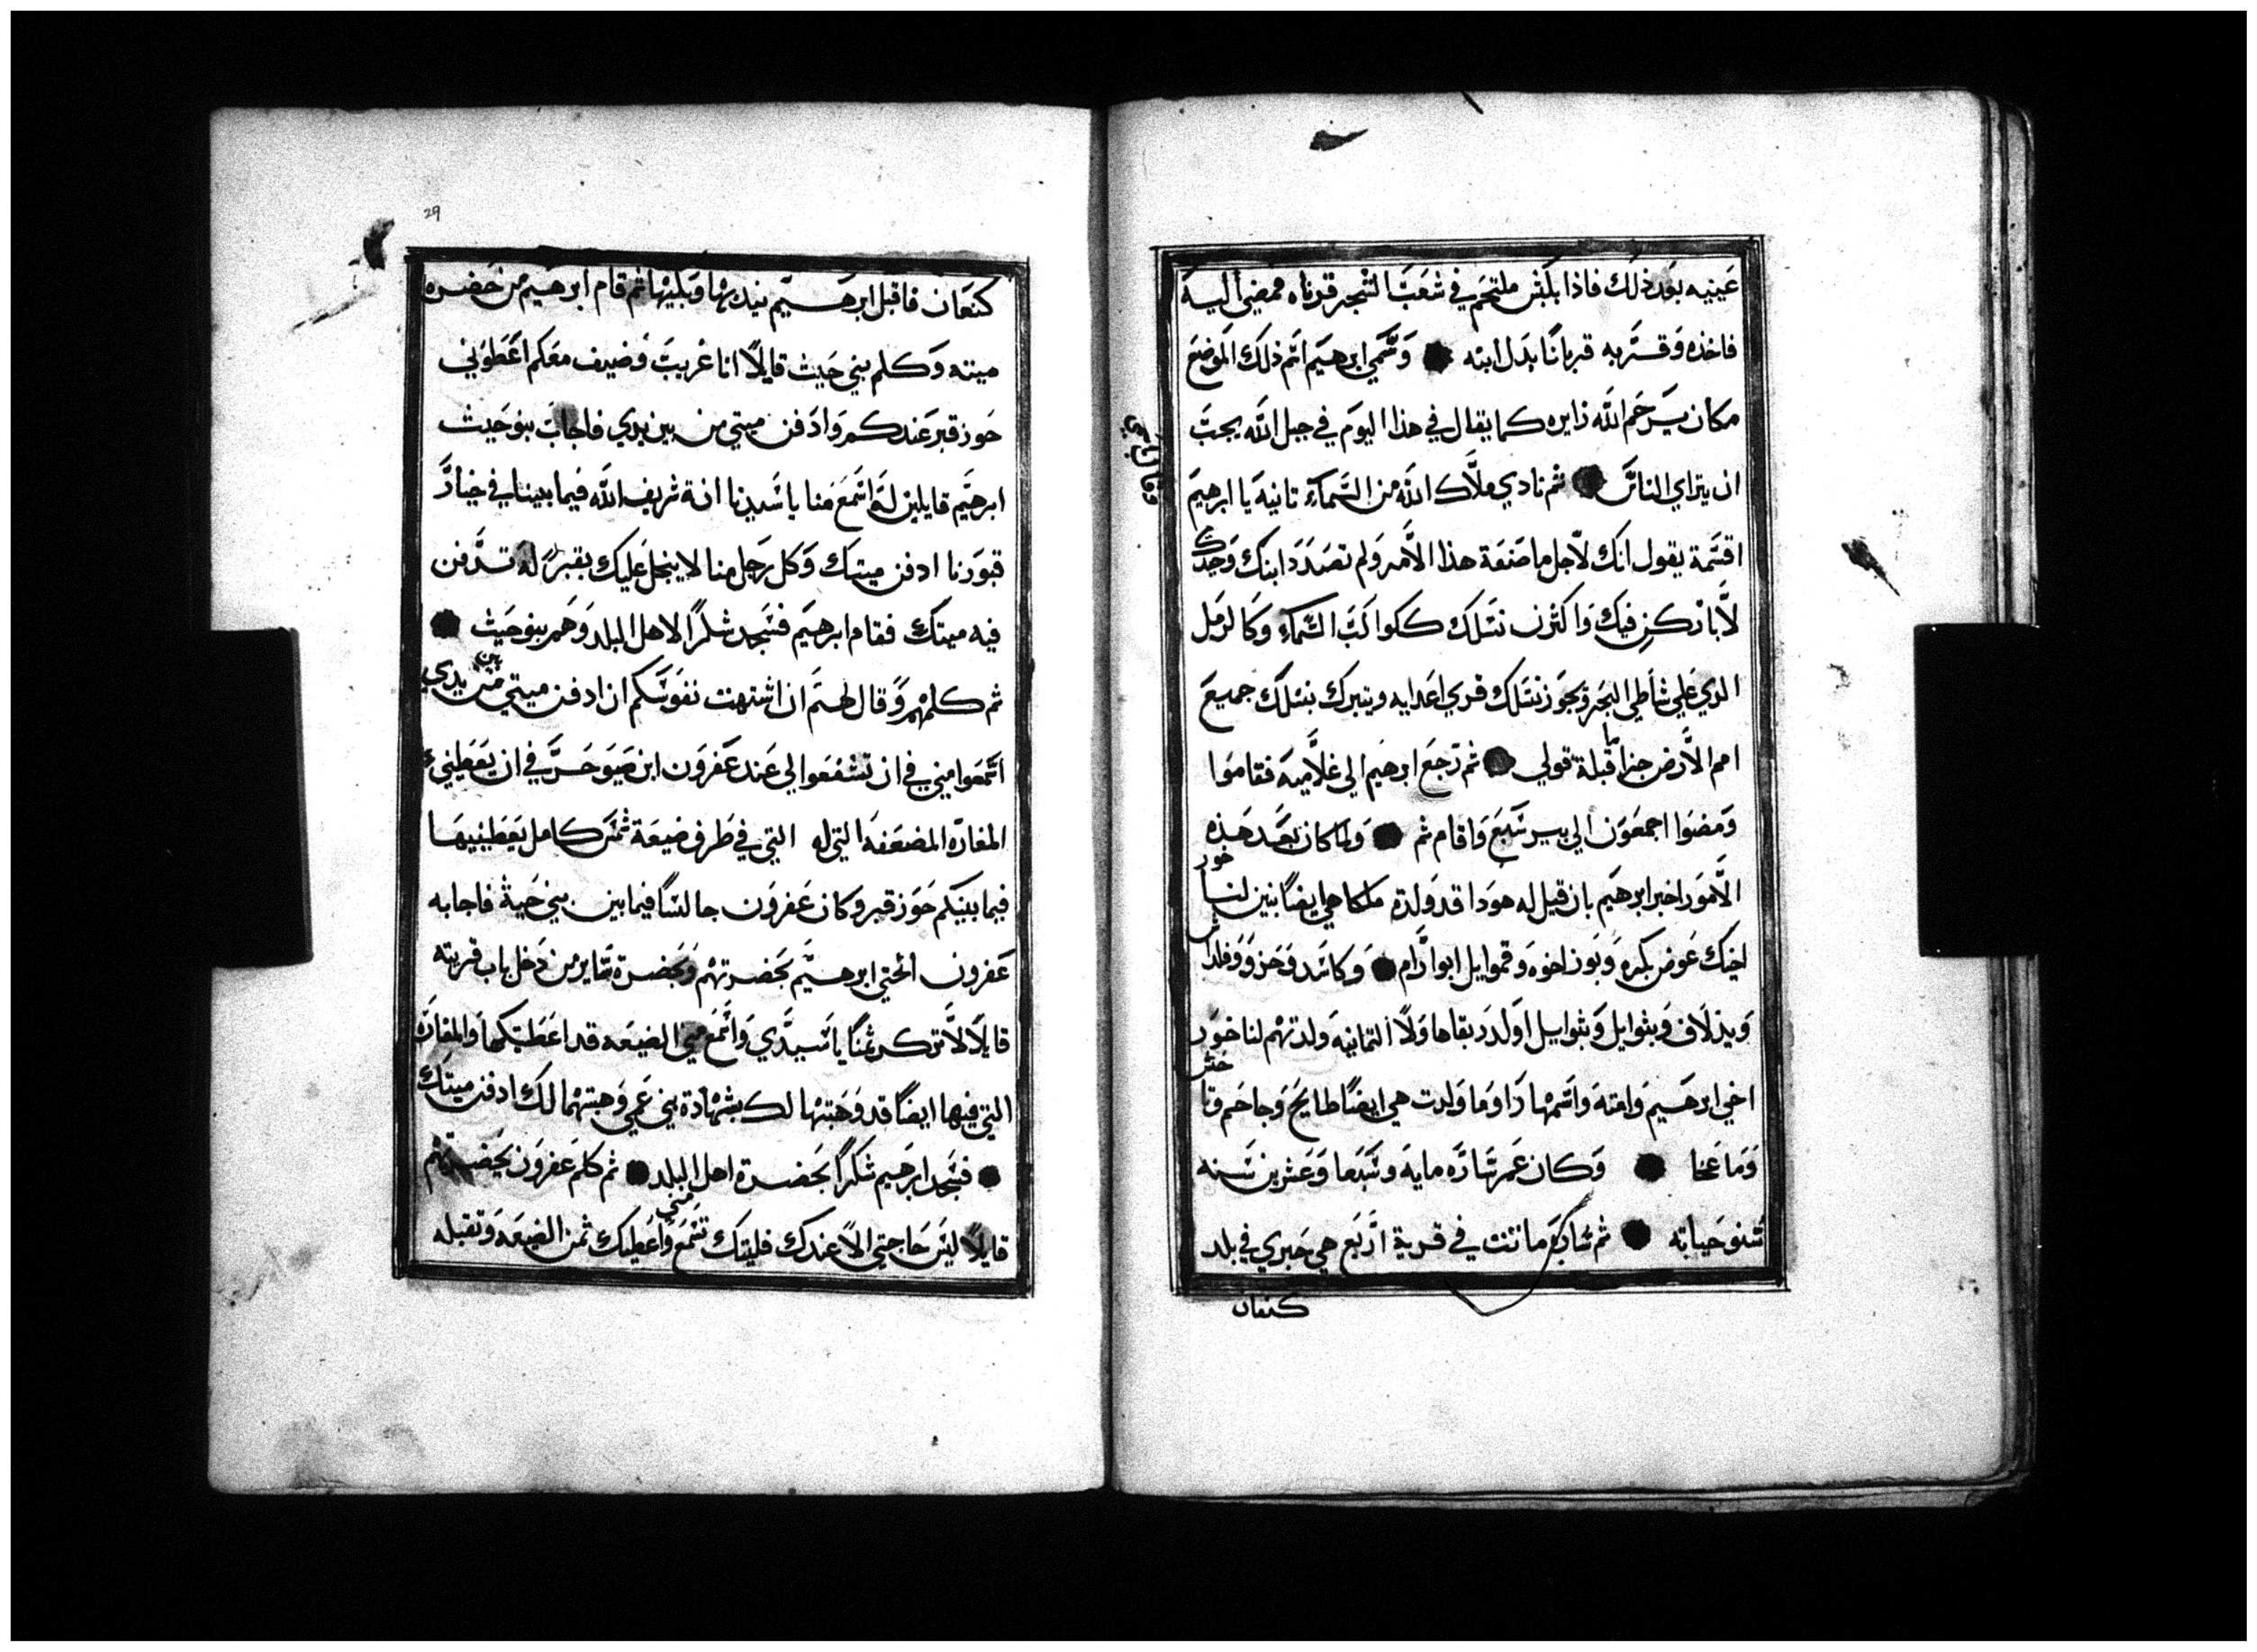 عينيه بعد ذلك فاذا بكبش ملتحم في شعب الشجر قرناه فمضي اليه
فاخذه وقربه قربانًا بدل ابنه وسمي ابرهيم اسم ذلك الموضع
مكان يرحم الله زايره كما يقال في هذا اليوم في جبل الله يجب
ان يتراي الناس ثم نادي ملاك الله من السماء ثانية يا ابرهيم
اقسمة يقول انك لاجل ما صنعة هذا الامر ولم تصدد ابنك وحيدك
لاباركن فيك واكثرن نسلك ككواكب السماء وكالرمل
الذي علي شاطي البحر ويحوز نسلك قري اعدايه ويتبرك بنسلك جميع
امم الارض جزا ما قبلة قولي ثم رجع ابرهيم الي غلاميه فقاموا
ومضوا اجمعون الي بير سبع واقام ثم ولما كان بعد هذه
الامور اخبر ابرهيم بان قيل له هوذا قد ولدة ملكا هي ايضًا بنين لناحور
اخيك عوض بكره وبوز اخوه وقموايل ابوارام وكاسد وحزو وفلداش
ويذلاف وبثوايل وبثوايل اولد ربقا هاولا الثمانية ولدتهم لناحور
اخي ابرهيم وامته واسمها راوما ولدت هي ايضًا طابح وجاحم وتاحش
وماعخا وكان عمر ساره ماية وسبعا وعشرين سنه
سنو حياته ثم ساره ماتت في قرية اربع هي حبري في بلد
كنعان
29
كنعان فاقبل ابرهيم يندبها ويبكيها ثم قام ابرهيم من حضرة
ميته وكلم بني حيث قايلًا انا غريب وضيف معكم اعطوني
حوز قبر عندكم وادفن ميتي من بين يدي فاجاب بنو حيث
ابرهيم قايلين له اسمع منا يا سيدنا انة شريف الله فيما بيننا في خيار
قبورنا ادفن ميتك وكل رجل منا لا يبخل عليك بقبره له تدفن
فيه ميتك فقام ابرهيم فسجد شكرًا لاهل البلد وهم بنو حيث
ثم كلمهم وقال لهم ان اشتهت نفوسكم ان ادفن ميتي من بين يدي
اسمعوا مني في ان تشفعوا لي عند عفرون ابن صوحر في ان يعطيني
المغاره المضعفه التي له التي في طرف ضيعة ثمن كامل يعطينيها
فيما بينكم حوز قبر وكان عفرون جالسًا فيما بين بني حية فاجابه
عفرون الحتي ابرهيم بحضرتهم وبحضرة ساير من دخل باب قريته
قايلًا لا تركر ثمنًا يا سيدي واسمع مني الضيعه قد اعطيتكها والمغاره
التي فيها ايضًا قد وهبتها لك بشهادة بني عمي وهبتها لك ادفن ميتك
فسجد ابرهيم شكرًا بحضرة اهل البلد ثم كلم عفرون بحضرتهم
قايلًا ليس حاجتي الا عندك فليتك تسمع مني واعطيك ثمن الضيعه وتقبله